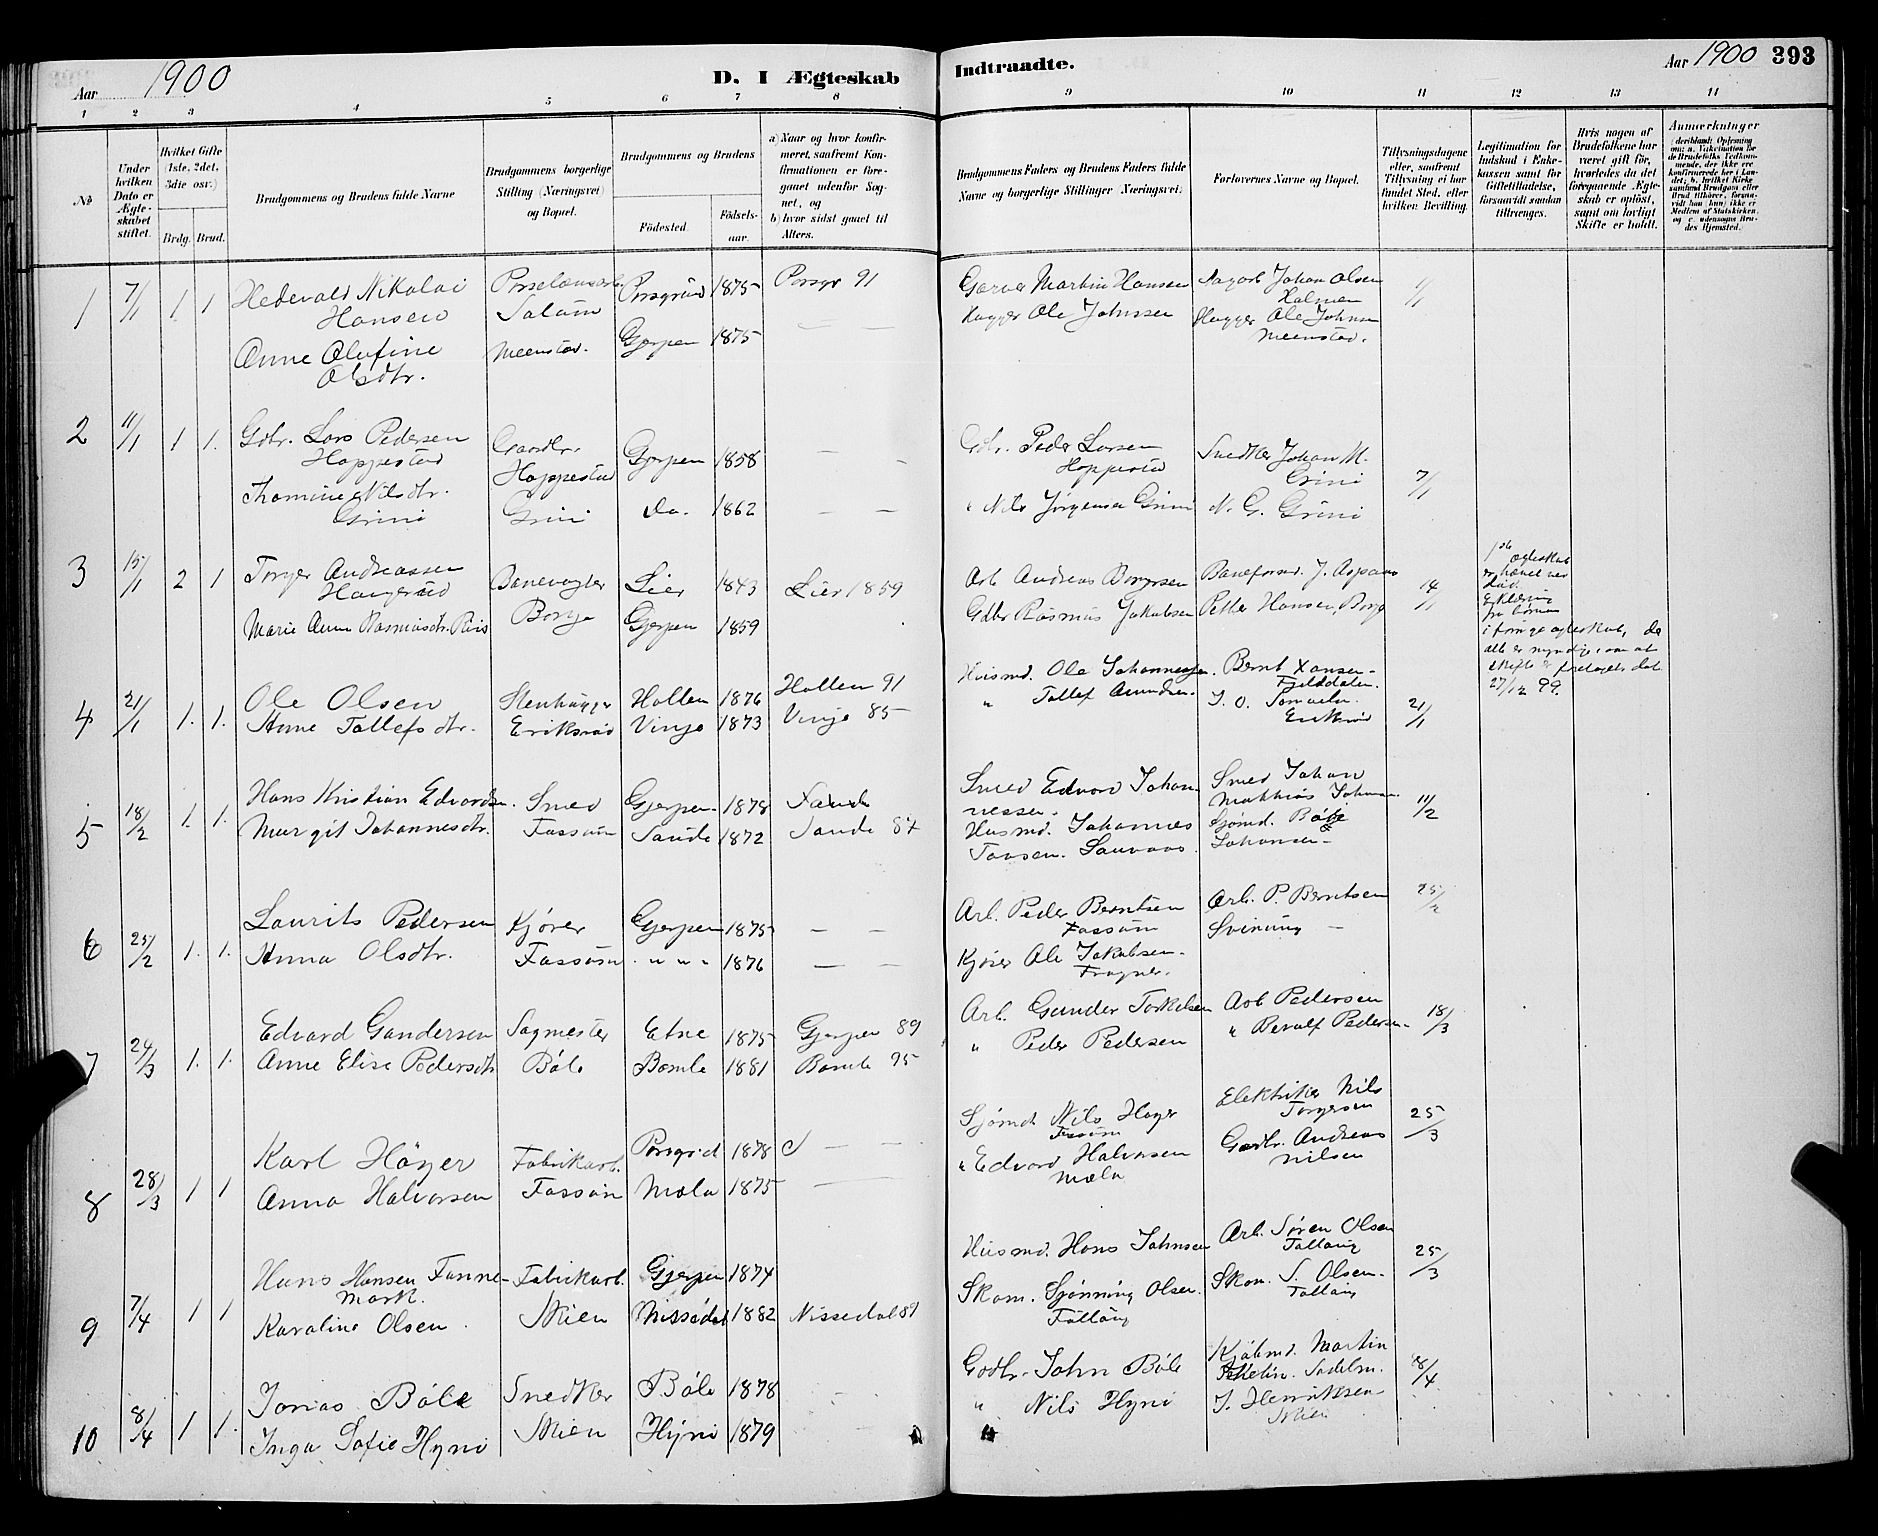 Aar 1900
D. I Ægteskab
Indtraadte.
Aar 1900 393
1 2 3 4 5 6 7 8 9 10 11 12 13 14
№
Under hvilken Dato er Ægteskabet stiftet.
Hvilket Gifte (1ste, 2det, 3die osv.)
Brdg. Brud.
Brudgommens og Brudens fulde Navne
Brudgommens borgerlige Stilling (Næringsvei) og Bopæl.
Brudgommens og Brudens
Fødested. Fødselsaar.
a) Naar og hvor konfirmeret, saafremt Konfirmationen er foregaaet udenfor Sognet, og
b) hvor sidst gaaet til Alters.
Brudgommens Faders og Brudens Faders fulde Navne og borgerlige Stillinger (Næringsvei)
Forlovernes Navne og Bopæl.
Tillysningsdagene eller, saafremt Tillysning ei har fundet Sted, efter hvilken Bevilling.
Legitimation for Indskud i Enkekassen samt for Giftetilladelse, forsaavidt saadan tiltrænges.
Hvis nogen af Brudefolkene har været gift før, hvorledes da det foregaaende Ægteskab er opløst, samt om lovligt Skifte er holdt.
Anmærkninger
1 7/1 1 1 Hedevald Nikolai Porselænsarb. Porsgrund 1875 Porsgr 91 Garver Martin Hansen Johan Olsen
Hansen Salum Holmen
Anne Olufine Meenstad. Gjerpen 1875 — — Hugger Ole Johnsen Hugger Ole Johnsen
Olsdtr. Meenstad.
2 11/1 1 1. Gdbr. Lars Pedersen Gaardbr. Gjerpen 1858 — — Gdbr. Peder Larsen Snedker Johan M. 7/1
Hoppestad Hoppestad Hoppestad Grini
Thomine Nilsdtr. Grini do. 1862 — — " Nils Jørgensen Grini N. G. Grini
Grini
3 15/1 2 1 Torger Andreassen Banevogter Lier 1843 Lier 1859 Arb Andreas Borgersen Baneformd. J. Aspaas 14/1
Haugerud Borge
Marie Anne Rasmusdtr. Riis Gjerpen 1859 Gdbr Rasmus Jakobsen Petter Hansen, Borge
1ste ægteskab
død.
Erklæring
fra børnene
i forrige ægteskab, da
alle er myndige, om at
skifte er foretaget, dat
27/12 99.
4 21/1 1. 1. Ole Olsen Stenhugger Hollen 1876 Hollen 91 Husmd. Ole Johannessen. Bernt Hansen 21/1
Fjelddalen.
Anne Tollefsdtr. Eriksrød Vinje 1873 Vinje 85 " Tollef Amundsen.
Eriksrød
5 18/2 1. 1. Hans Kristian Edvardsen. Smed Gjerpen 1878 Sande Smed Edvard Johan- Smed Johan 11/2
nessen. Mathias Johannesen
Margit Johannesdtr. Fossum Saude 1872 Saude 87 Husmd. Johannes Sjømd. Bøle
Johansen
6 25/2 1. 1. Laurits Pedersen Kjører Gjerpen 1875 — — Arb. Peder Berntsen Arb. P. Berntsen 25/2
Fossum Svining —
Anna Olsdtr. Fossum " " " 1876 — — Kjører Ole Jakobsen.
Frogner.
7 24/3 1. 1. Edvard Gundersen Sagmester Etne 1875 Gjerpen 89 Arb. Gunder Torkelsen Arb Pedersen 18/3
Anne Elise Pedersdtr Bøle Bamle 1881 Bamle 95 " Peder Pedersen " Pedersen
8 28/3 1 1 Karl Høyer Fabrikarb. Porsgrd 1878 — — Sjømd Nils Høyer Elektriker Nils 25/3
Fossum Torgersen
Anna Halvorsen Fossum Mæla 1875 — — " Edvard Halvorsen Gaardbr. Andreas
Mæla Nilsen
9 7/4 1 1 Hans Hansen Fanne- Fabrikarb. Gjerpen 1874 Husmd. Hans Johnsen Arb. Søren Olsen 25/3
mark. Follaug
Karoline Olsen. Skien Nissedal 1882 Nissedal 87 Skom. Sjønning Olsen. Skom. S. Olsen.
Follaug Follaug
10 8/4 1 1. Jonas Bøle Snedker Bøle 1878 — Gaardbr. John Bøle Kjøbmd. Martin 8/4
Inga Sofie Hyni Skien Hyni 1879 " Nils Hyni J. Henriksen
Skien